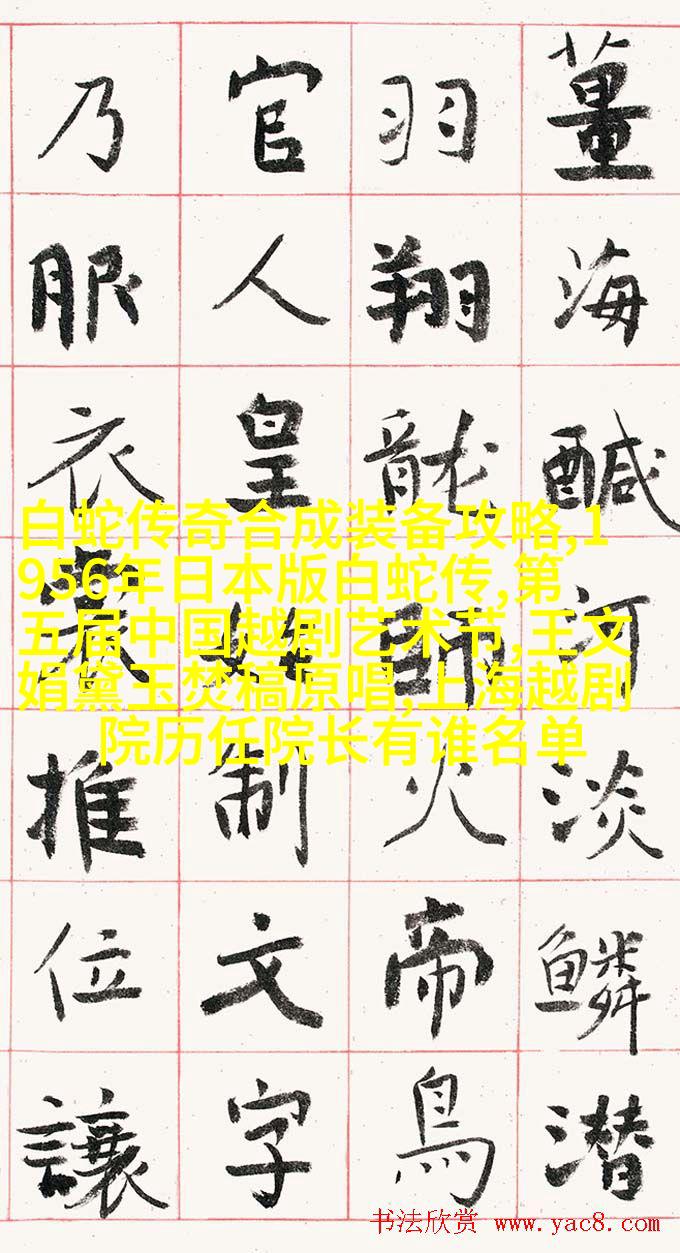 薑海醎河淡鱗潛
羽翔龍師火帝鳥
官人皇始制文字
乃服衣裳推位讓
白蛇传奇合成装备攻略,1
956年日本版白蛇传,第
五届中国越剧艺术节,王文
娟黛玉焚稿原唱,上海越剧
院历任院长有谁名单
书法欣赏 www.yac8.com